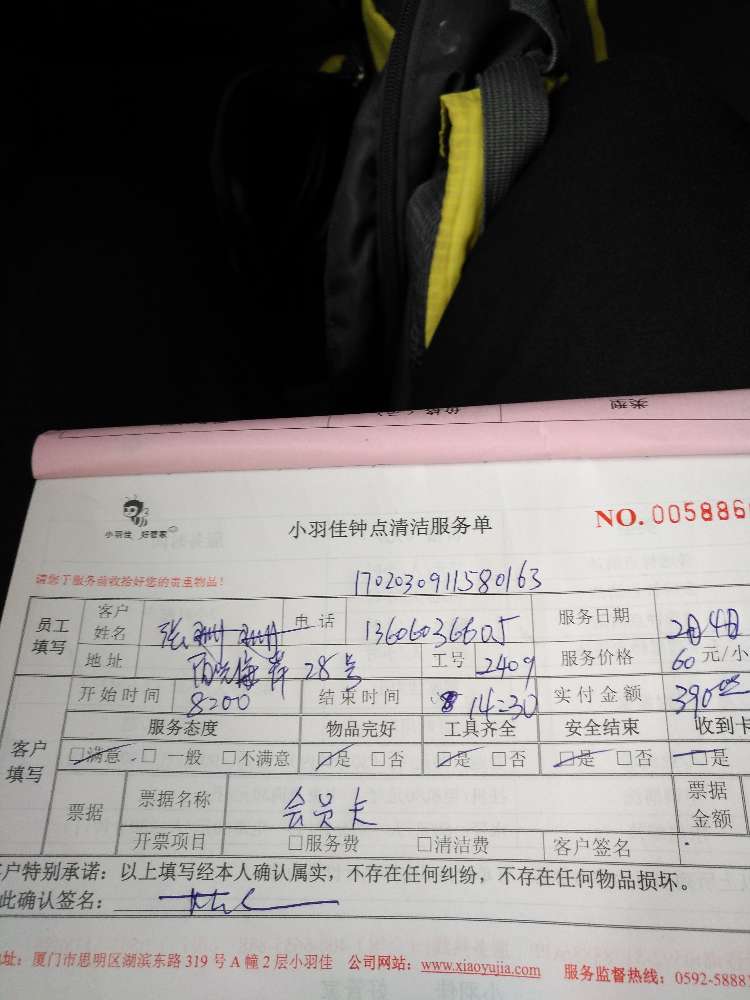 类型
小羽佳 好管家
小羽佳钟点清洁服务单
NO. 005886
请您于服务前收拾好您的贵重物品!
1702030911580163
员工填写 客户姓名 张珊珊 电话 13606036605 服务日期 2月4日
地址 28号 工号 2409 服务价格 60元/小
开始时间 8:00 结束时间 14:30 实付金额 390
客户填写 服务态度 物品完好 工具齐全 安全结束 收到卡
□满意 □一般 □不满意 □是 □否 □是 □否 □是 □否 □是
票据 票据名称 会员卡 票据金额
开票项目 □服务费 □清洁费 客户签名
客户特别承诺:以上填写经本人确认属实,不存在任何纠纷,不存在任何物品损坏。
此确认签名:
址:厦门市思明区湖滨东路 319 号 A 幢 2 层小羽佳 公司网站:www.xiaoyujia.com 服务监督热线:0592-5888